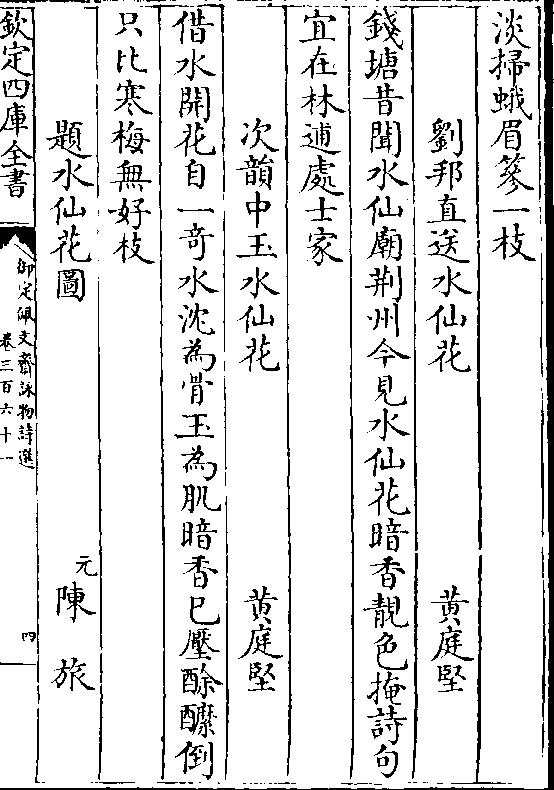 淡掃蛾眉篸一枝
劉邦直送水仙花 黄庭堅
錢塘昔聞水仙廟荆州今見水仙花暗香靚色掩詩句
宜在林逋處士家
次韻中玉水仙花 黄庭堅
借水開花自一奇水沈為骨玉為肌暗香已壓酴醾倒
只比寒梅無好枝
題水仙花圖 元陳旅
欽定四庫全書
御定佩文齋詠物詩選
卷三百六十一
四